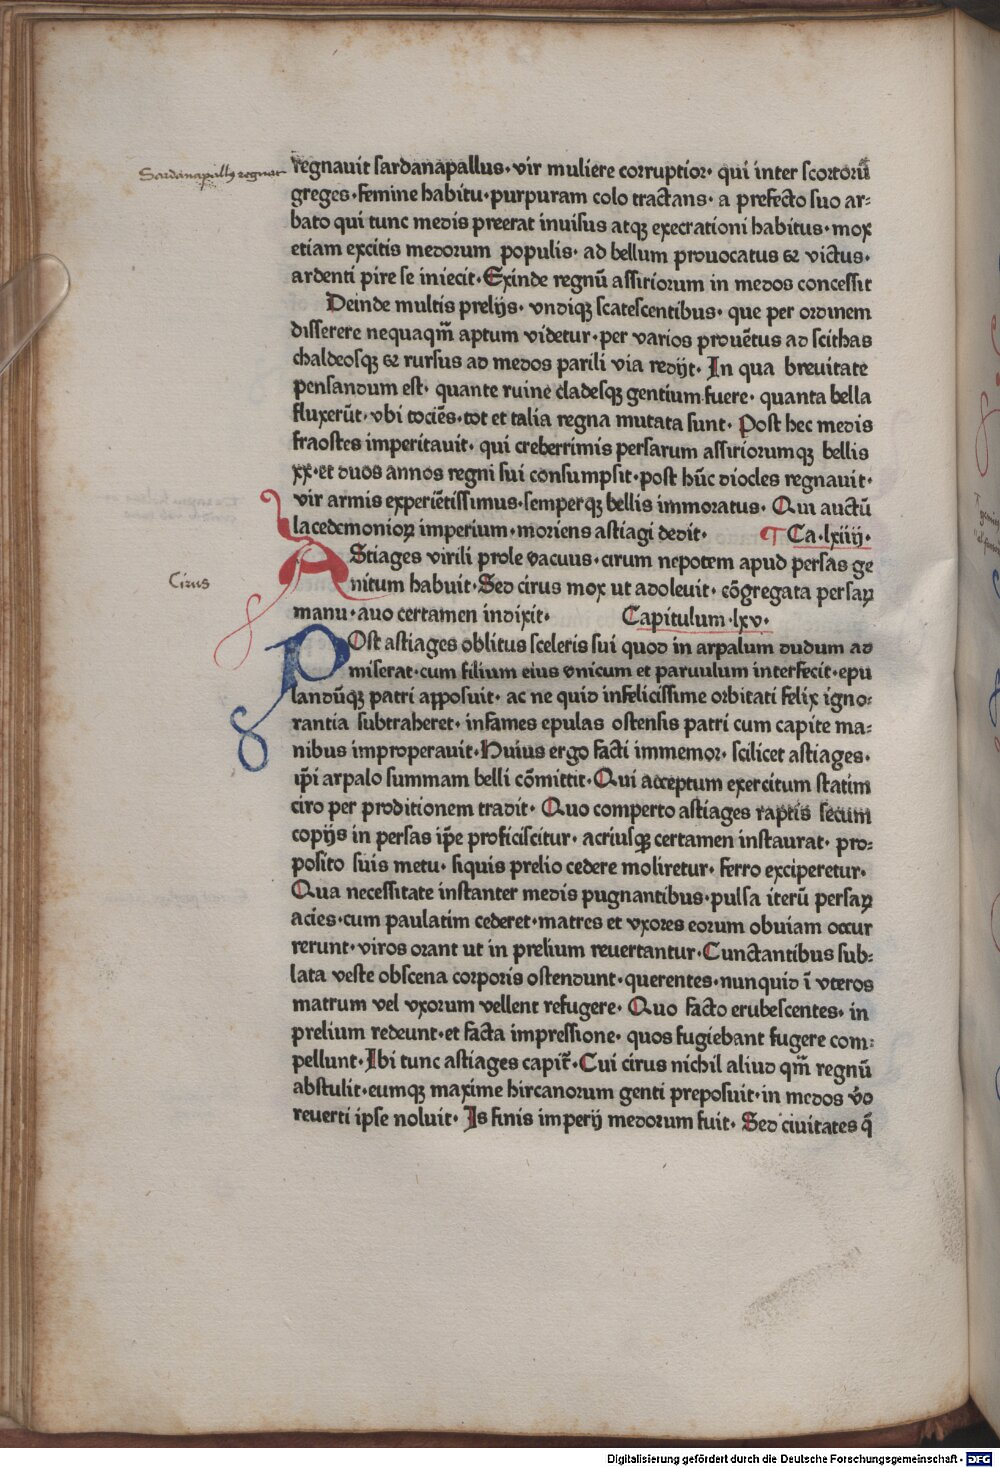 Sardanapallꝰ regnat
regnauit sardanapallus· vir muliere corruptior· qui inter scortorū
greges· femine habitu· purpuram colo tractans· a prefecto suo ar⸗
bato qui tunc medis preerat inuisus atqꝫ execrationi habitus· mox
etiam excitis medorum populis· ad bellum prouocatus ⁊ victus·
ardenti pire se iniecit· Exinde regnū assiriorum in medos concessit
Deinde multis prelijs· vndiqꝫ scatescentibus· que per ordinem
disserere nequaqm̄ aptum videtur· per varios prouētus ad scithas
chaldeosqꝫ ⁊ rursus ad medos parili via redijt· In qua breuitate
pensandum est· quante ruine cladesqꝫ gentium fuere· quanta bella
fluxerūt· vbi tociēs· tot et talia regna mutata sunt· Post hec medis
fraostes imperitauit· qui creberrimis persarum assiriorumqꝫ bellis
xx· et duos annos regni sui consumpsit· post hūc diocles regnauit·
vir armis experiētissimus· semperqꝫ bellis immoratus· Qui auctū
lacedemonioꝝ imperium· moriens astiagi dedit· ¶ Ca· lxiiij·
AStiages virili prole vacuus· cirum nepotem apud persas ge
Cirus
nitum habuit· Sed cirus mox ut adoleuit· cōgregata persaꝝ
manu· auo certamen indixit· Capitulum ·lxv·
POst astiages oblitus sceleris sui quod in arpalum dudum ad
miserat· cum filium eius vnicum et paruulum interfecit· epu
landūqꝫ patri apposuit· ac ne quid infelicissime orbitati felix igno⸗
rantia subtraheret· infames epulas ostensis patri cum capite ma⸗
nibus improperauit· Huius ergo facti immemor· scilicet astiages·
ip̄i arpalo summam belli cōmittit· Qui acceptum exercitum statim
ciro per proditionem tradit· Quo comperto astiages raptis secum
copijs in persas ip̄e proficiscitur· acriusqꝫ certamen instaurat· pro⸗
posito suis metu· siquis prelio cedere moliretur· ferro exciperetur·
Qua necessitate instanter medis pugnantibus· pulsa iterū persaꝝ
acies· cum paulatim cederet· matres et vxores eorum obuiam occur
rerunt· viros orant ut in prelium reuertantur· Cunctantibus sub⸗
lata veste obscena corporis ostendunt· querentes· nunquid ī vteros
matrum vel vxorum vellent refugere· Quo facto erubescentes· in
prelium redeunt· et facta impressione· quos fugiebant fugere com⸗
pellunt· Ibi tunc astiages capit̄· Cui cirus nichil aliud qm̄ regnū
abstulit· eumqꝫ maxime hircanorum genti preposuit· in medos v̄o
reuerti ipse noluit· Is finis imperij medorum fuit· Sed ciuitates q̄
Digitalisierung gefördert durch die Deutsche Forschungsgemeinschaft - DFG